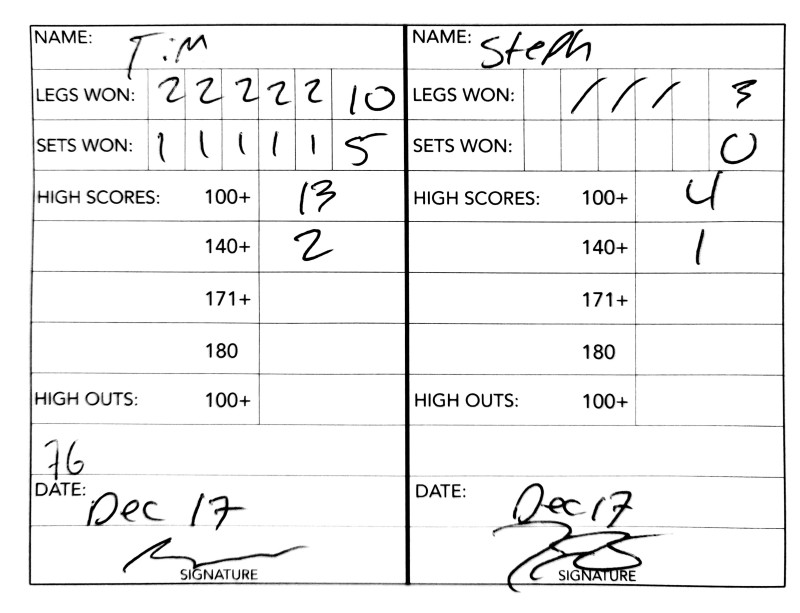 NAME: Tim
LEGS WON: 2 2 2 2 2 10
SETS WON: 1 1 1 1 1 5
HIGH SCORES: 100+ 13
140+ 2
171+
180
HIGH OUTS: 100+
76
DATE: Dec 17
SIGNATURE
NAME: Steph
LEGS WON: / / / 3
SETS WON: 0
HIGH SCORES: 100+ 4
140+ 1
171+
180
HIGH OUTS: 100+
DATE: Dec 17
SIGNATURE